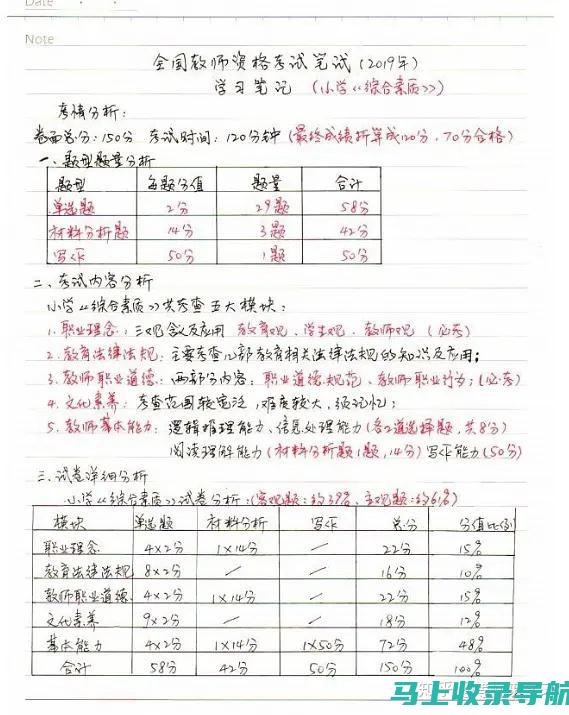 Date
Note
全国教师资格考试笔试(2019年)
学习笔记 (小学《综合素质》)
考情分析:
卷面总分:150分 考试时间:120分钟(最终成绩折算成120分,70分合格)
一、题型题量分析
题型 每题分值 题量 合计
单选题 2分 29题 58分
材料分析题 14分 3题 42分
写作 50分 1题 50分
二、考试内容分析
小学《综合素质》共考查五大模块:
1.职业理念:三观含义及应用 教育观、学生观、教师观 (必考)
2.教育法律法规:主要考查几部教育相关法律法规的知识及应用;
3.教师职业道德:两部分内容:职业道德规范、教师职业行为;(必考)
4.文化素养:考查范围较宽泛,难度较大,须记忆;
5.教师基本能力:逻辑推理能力、信息处理能力(各2道选择题,共8分)
阅读理解能力(材料分析题1题,14分)写作能力(50分)
三、试卷详细分析
小学《综合素质》试卷分析:(客观题:约39%,主观题:约61%)
模块 单选题 材料分析 写作 总分 分值比例
职业理念 4×2分 1×14分 / 22分 15%
教育法律法规 8×2分 / / 16分 10%
教师职业道德 4×2分 1×14分 / 22分 15%
文化素养 9×2分 / / 18分 12%
基本能力 4×2分 1×14分 1×50分 72分 48%
合计 58分 42分 50分 150分 100%
马上收录导航